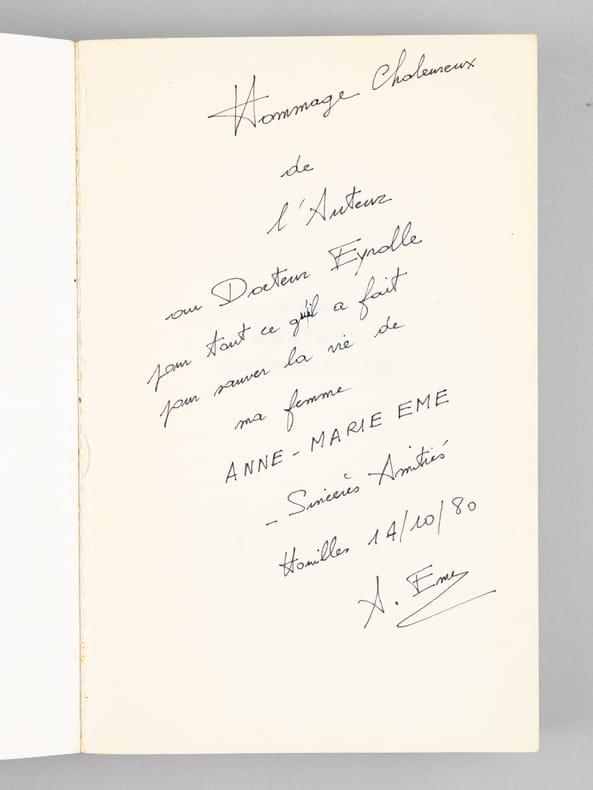 Hommage Chaleureux
de
l'Auteur
au Docteur Eyrolle
pour tout ce qu'il a fait
pour sauver la vie de
ma femme
ANNE-MARIE EME
- Sincères Amitiés
Houilles 14/10/80
A. Eme